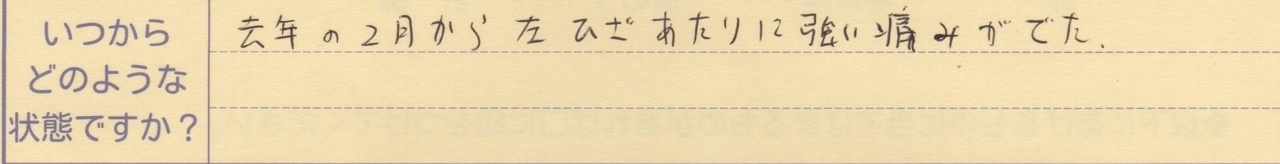 いつから
どのような
状態ですか？
去年の2月から左ひざあたりに強い痛みがでた.